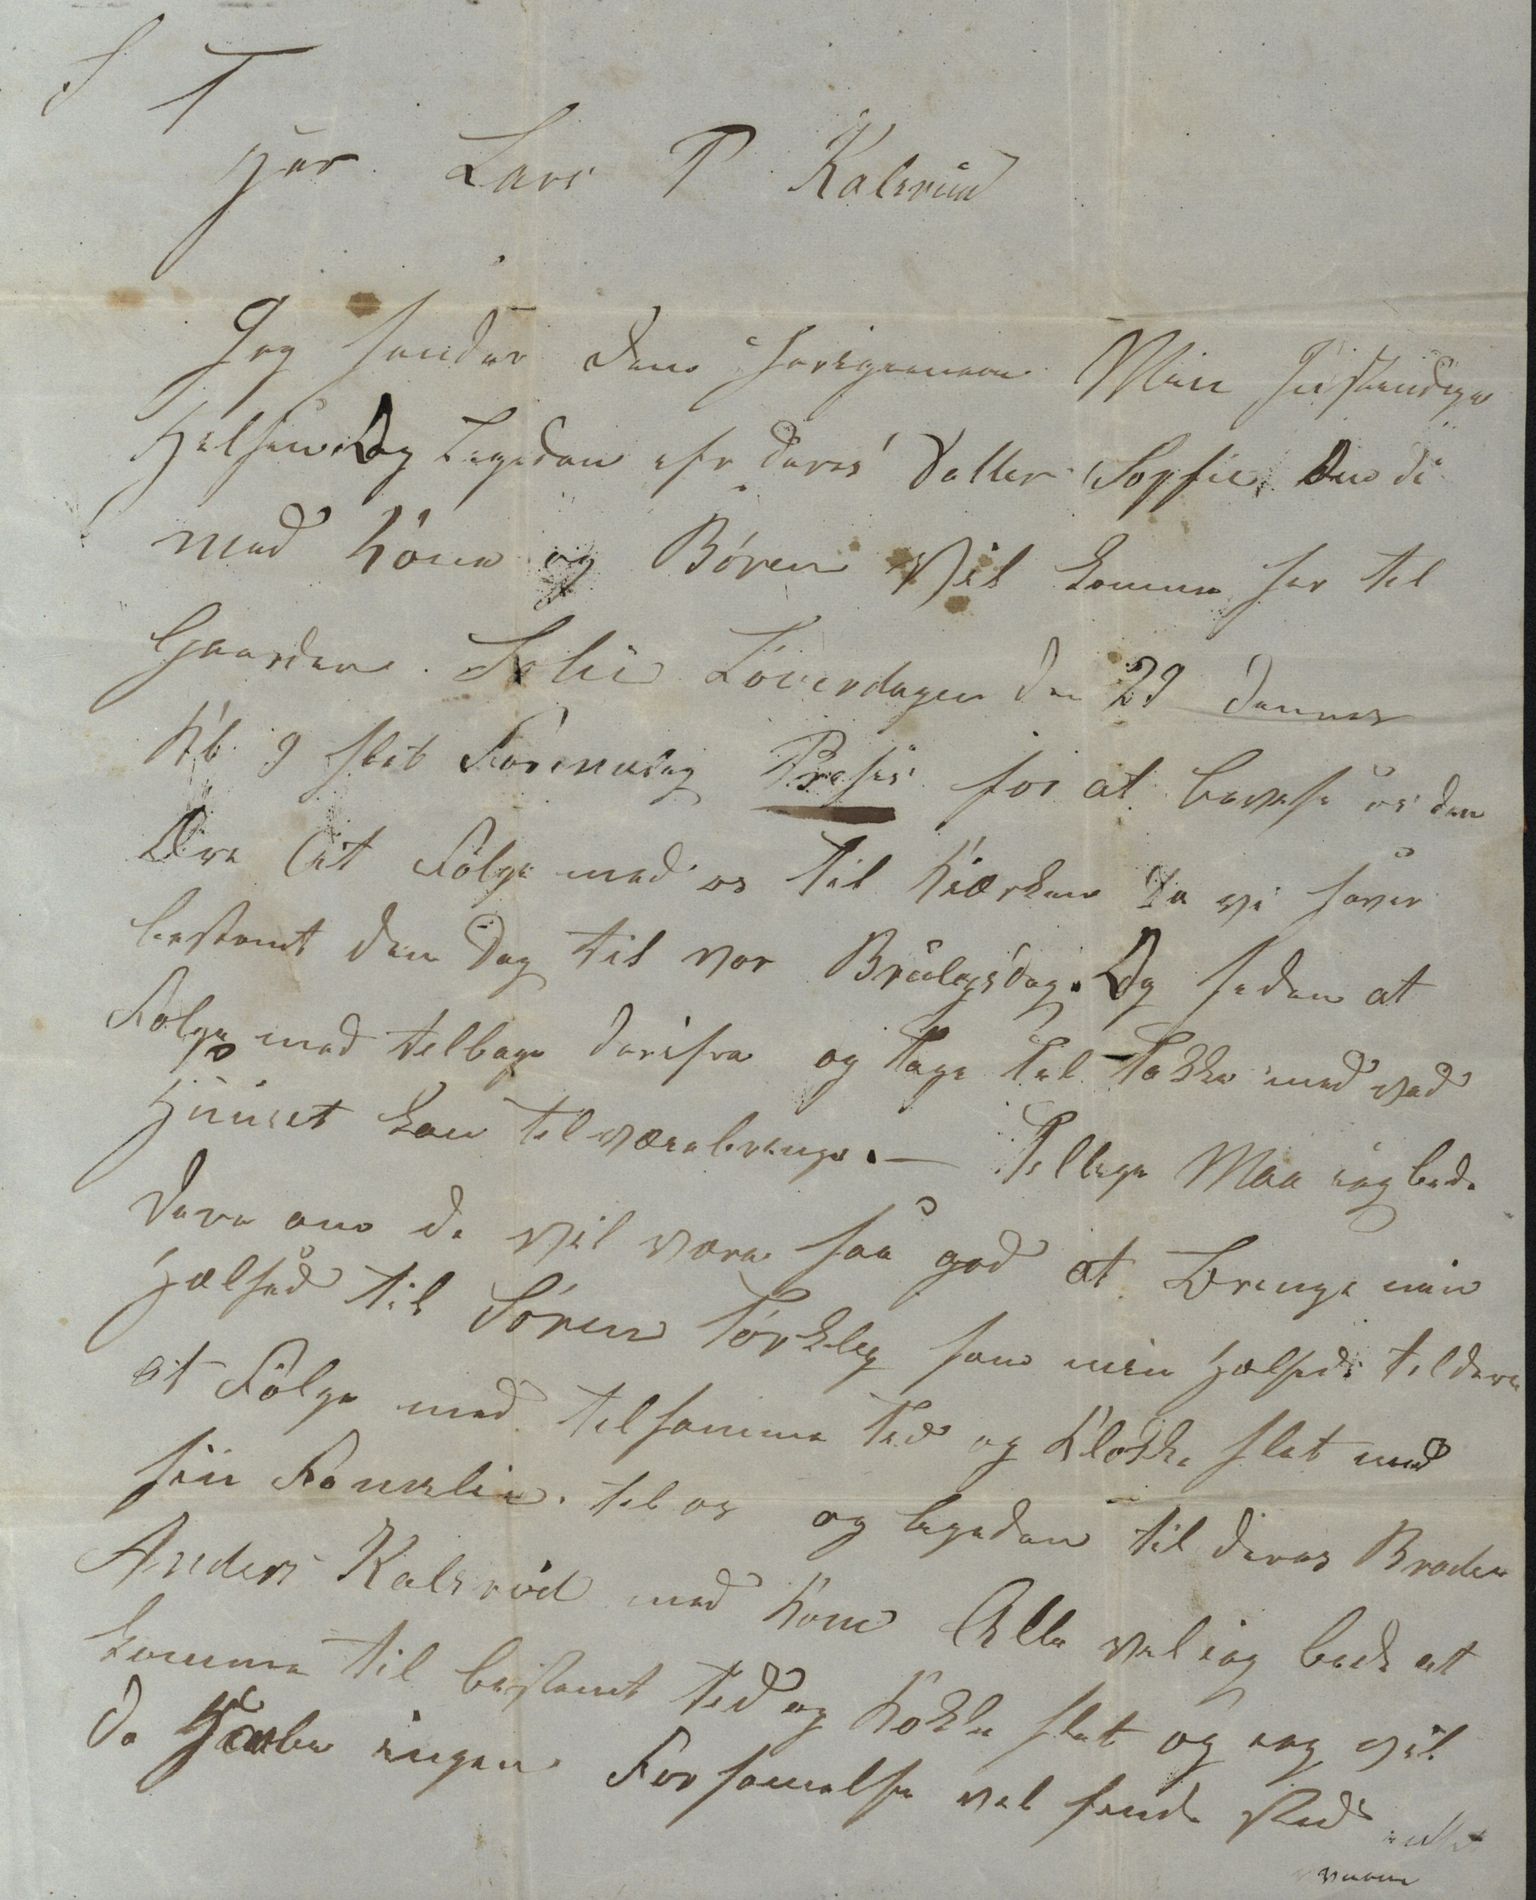 S T
Hær Lars P Kalsrud
Jeg sender dem herigenem Min Instendige
Helsen Og Ligedan efr deres Datter Sopfie, Om di
med Kone og Børen Vil komme her til
Gaarden Solie Løverdagen den 29 dennes
Kl 9 slet Formidag Presis for at bevise os den
Ære at Følge med os til Kiærken Da vi haver
bestemt den Dag til vor Brulupsdag. Og seden at
Følge med telbage derifra og Tage Tel Takke med vad
Huuset kan tilveiebringe. — Tellige Maa ieg bede
dere om de vil være saa god at Bringe min
Hælsed til Søren Tørkley som min Hælsed til dere
at Følge med til samme Tid og Klokke slet med
sin Familie til os og ligedan til deres Broder
Anders Kalsrød med Kone Alle vel ieg bede at
komme til bestemt Tid og Kokke slet og ieg vil
de Haabe ingen Forsømelse vel finde Sted